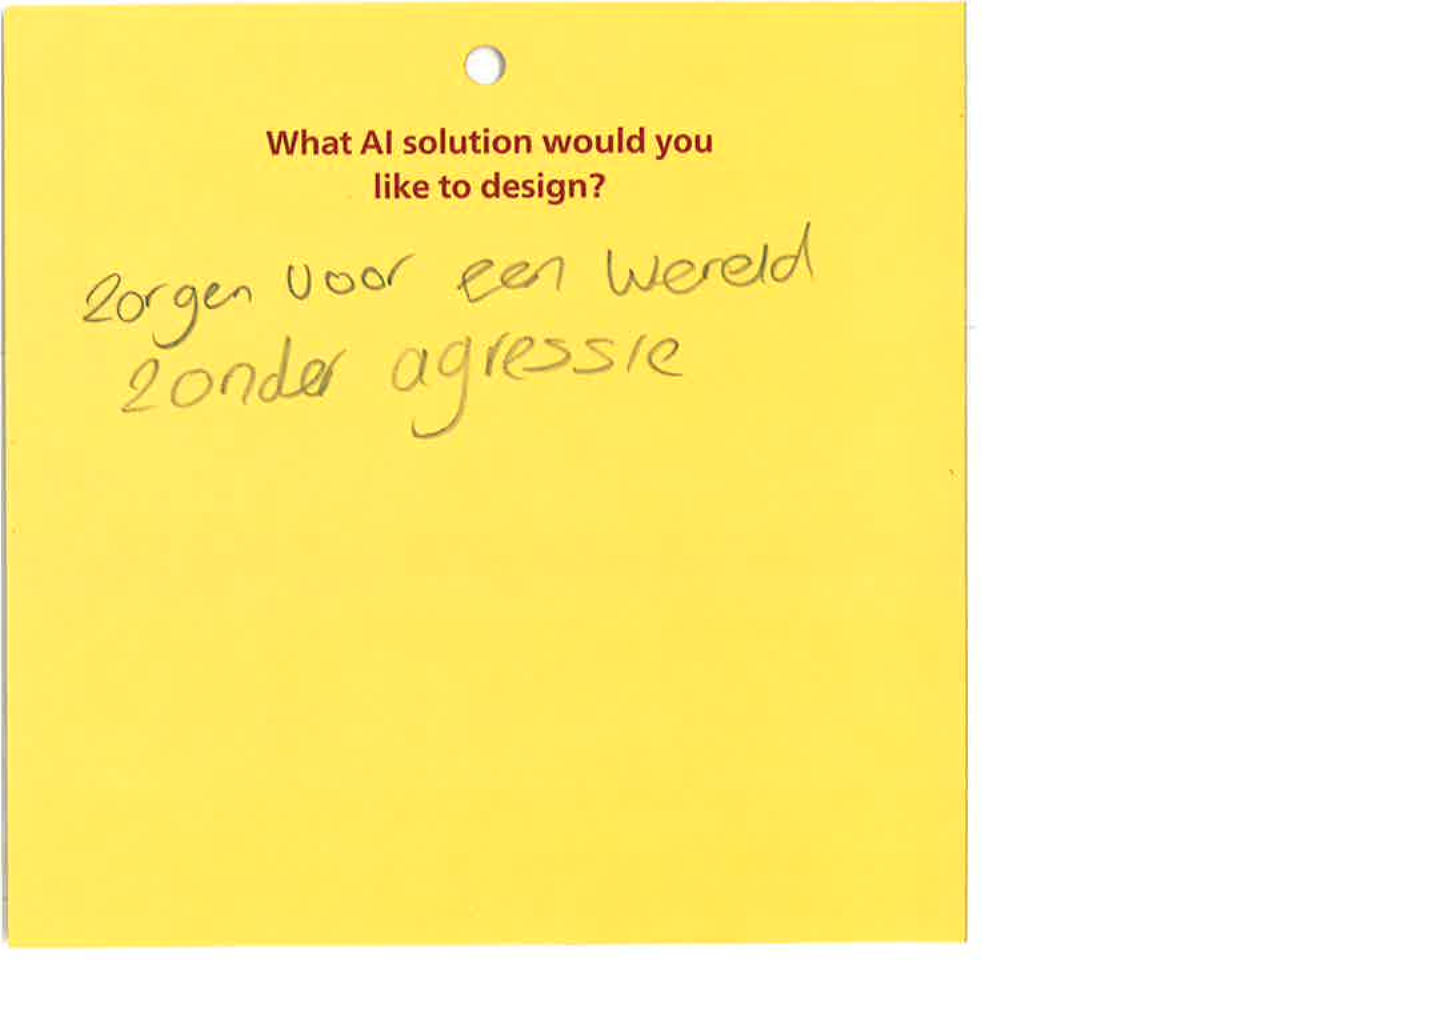 What AI solution would you
like to design?
Zorgen voor een wereld
zonder agressie